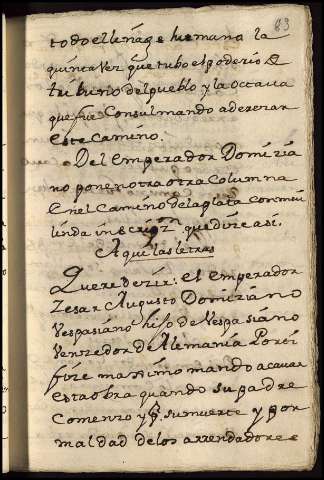 83
todo el linage humana la
quinta vez que tubo el poderio de
tribuno del pueblo y la octava
que fue Consul mando aderezar
este camino.
Del emperador Domizia
no ponen otra otra columna
en el camino de la plata con mui
linda inscripzon que dize asi.
Aqui las letras
Quere dezir: el emperador
Zesar Augusto Domiziano
Vespasiano hijo de Vespasiano
Venzedor de Alemania Ponti
fize maximo mando acavar
esta obra quando su padre
comenzo y p. su muerte y por
maldad de los arrendadore